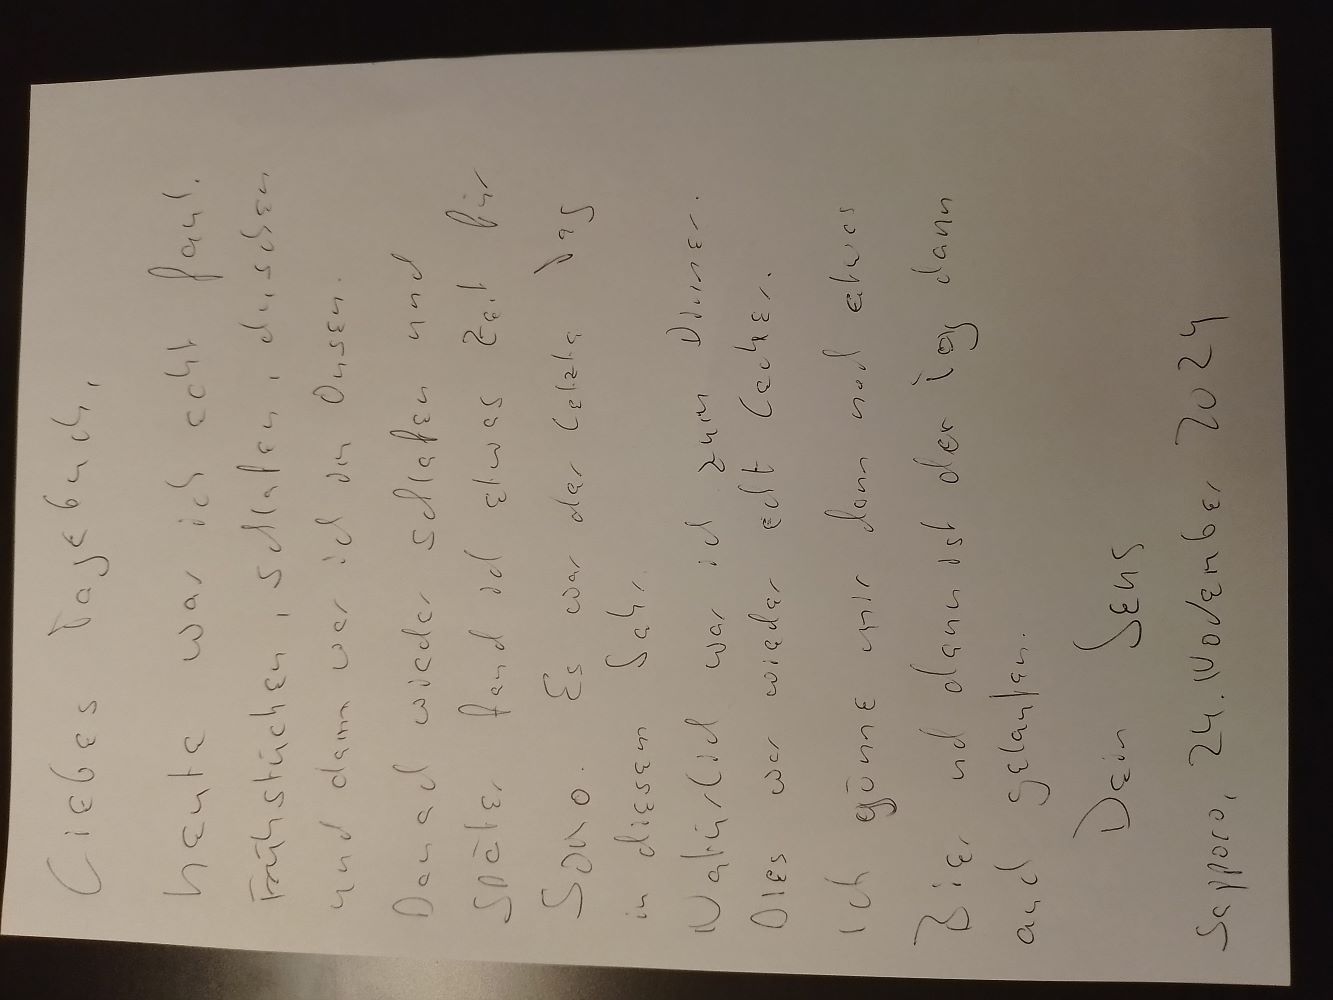 Liebes Tagebuch,
heute war ich echt faul.
Frühstücken, schlafen, duschen
und dann war ich im Onsen.
Danach wieder schlafen und
später fand ich etwas Zeit für
Soko. Es war der letzte Tag
in diesem Jahr.
Natürlich war ich zum Dinner.
Dies war wieder echt lecker.
Ich gönne mir dann noch etwas
Bier und dann ist der Tag dann
auch gelaufen.
Dein Jens
Sapporo, 24. November 2024